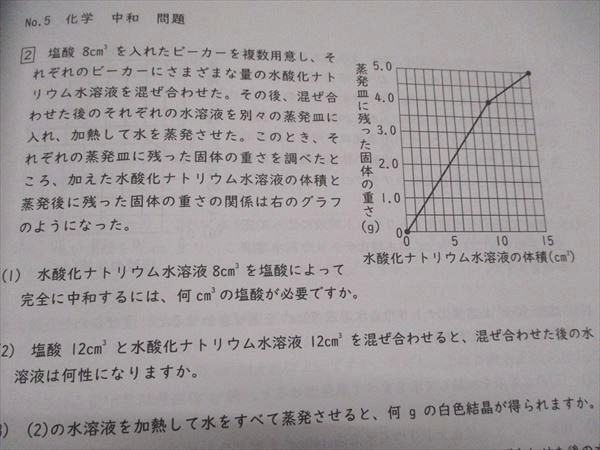 No.5 化学 中和 問題
2 塩酸 8cm³ を入れたビーカーを複数用意し、そ
れぞれのビーカーにさまざまな量の水酸化ナト
リウム水溶液を混ぜ合わせた。その後、混ぜ合
わせた後のそれぞれの水溶液を別々の蒸発皿に
入れ、加熱して水を蒸発させた。このとき、そ
れぞれの蒸発皿に残った固体の重さを調べたと
ころ、加えた水酸化ナトリウム水溶液の体積と
蒸発後に残った固体の重さの関係は右のグラフ
のようになった。
蒸発皿に残った固体の重さ(g)
5.0
4.0
3.0
2.0
1.0
0
0 5 10 15
水酸化ナトリウム水溶液の体積(cm³)
(1) 水酸化ナトリウム水溶液 8cm³ を塩酸によって
完全に中和するには、何 cm³ の塩酸が必要ですか。
2) 塩酸 12cm³ と水酸化ナトリウム水溶液 12cm³ を混ぜ合わせると、混ぜ合わせた後の水
溶液は何性になりますか。
3) (2)の水溶液を加熱して水をすべて蒸発させると、何 g の白色結晶が得られますか。